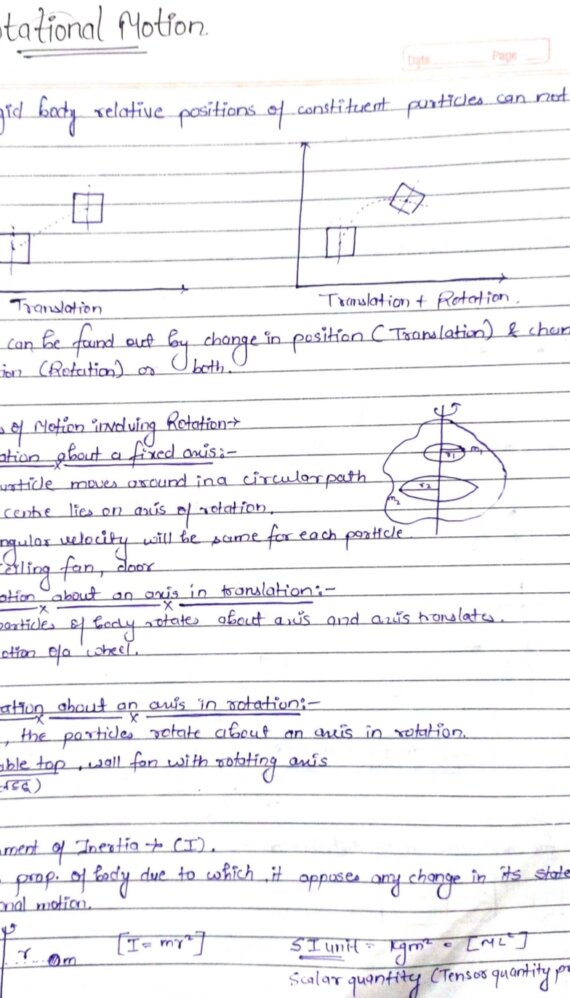 tational Motion.
Date Page
gid body relative positions of constituent particles can not
Translation
Translation + Rotation.
can be found out by change in position (Translation) & chan
ion (Rotation) or both.
s of Motion involving Rotation→
ation about a fixed axis:-
article moves around in a circular path
centre lies on axis of rotation.
ngular velocity will be same for each particle
eiling fan, door
r1 m1
r2
m2
otion about an axis in translation:-
particles of body rotates about axis and axis translates.
otion o/a wheel.
ation about an axis in rotation:-
, the particles rotate about an axis in rotation.
ble top, wall fan with rotating axis
ment of Inertia → (I).
prop. of body due to which it opposes any change in its state
onal motion.
r m
[I = mr²]
SI unit = kgm² = [ML²]
Scalar quantity (Tensor quantity pr